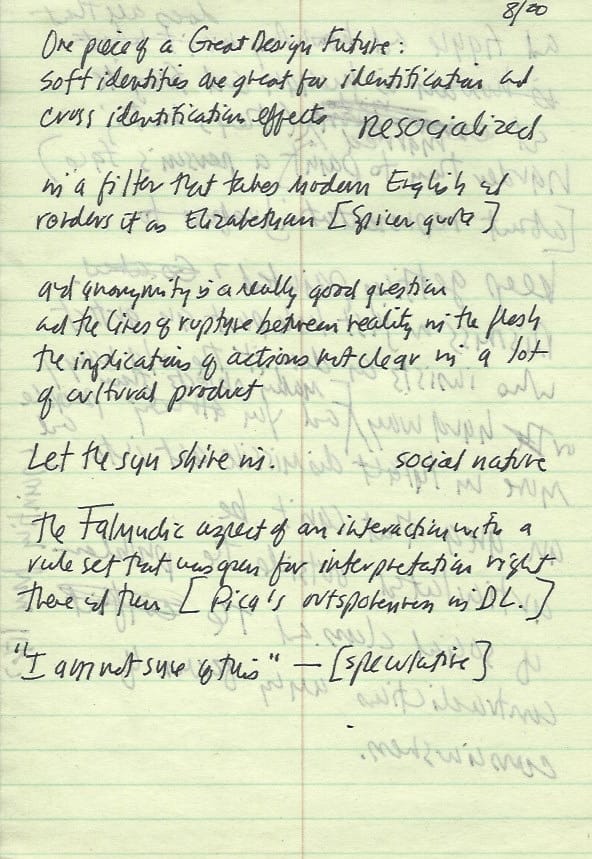 8/20
One piece of a Great Design Future:
soft identities are great for identification and
cross identification effects resocialized
in a filter that takes modern English and
renders it as Elizabethan [Spicer quote]
and anonymity is a really good question
and the lines of rupture between reality in the flesh
the implications of actions not clear in a lot
of cultural product
Let the sun shine in. social nature
The Talmudic aspect of an interaction with a
rule set that was open for interpretation right
there and then [Pica's outspokenness in DL.]
"I am not sure of this" — [speculative]